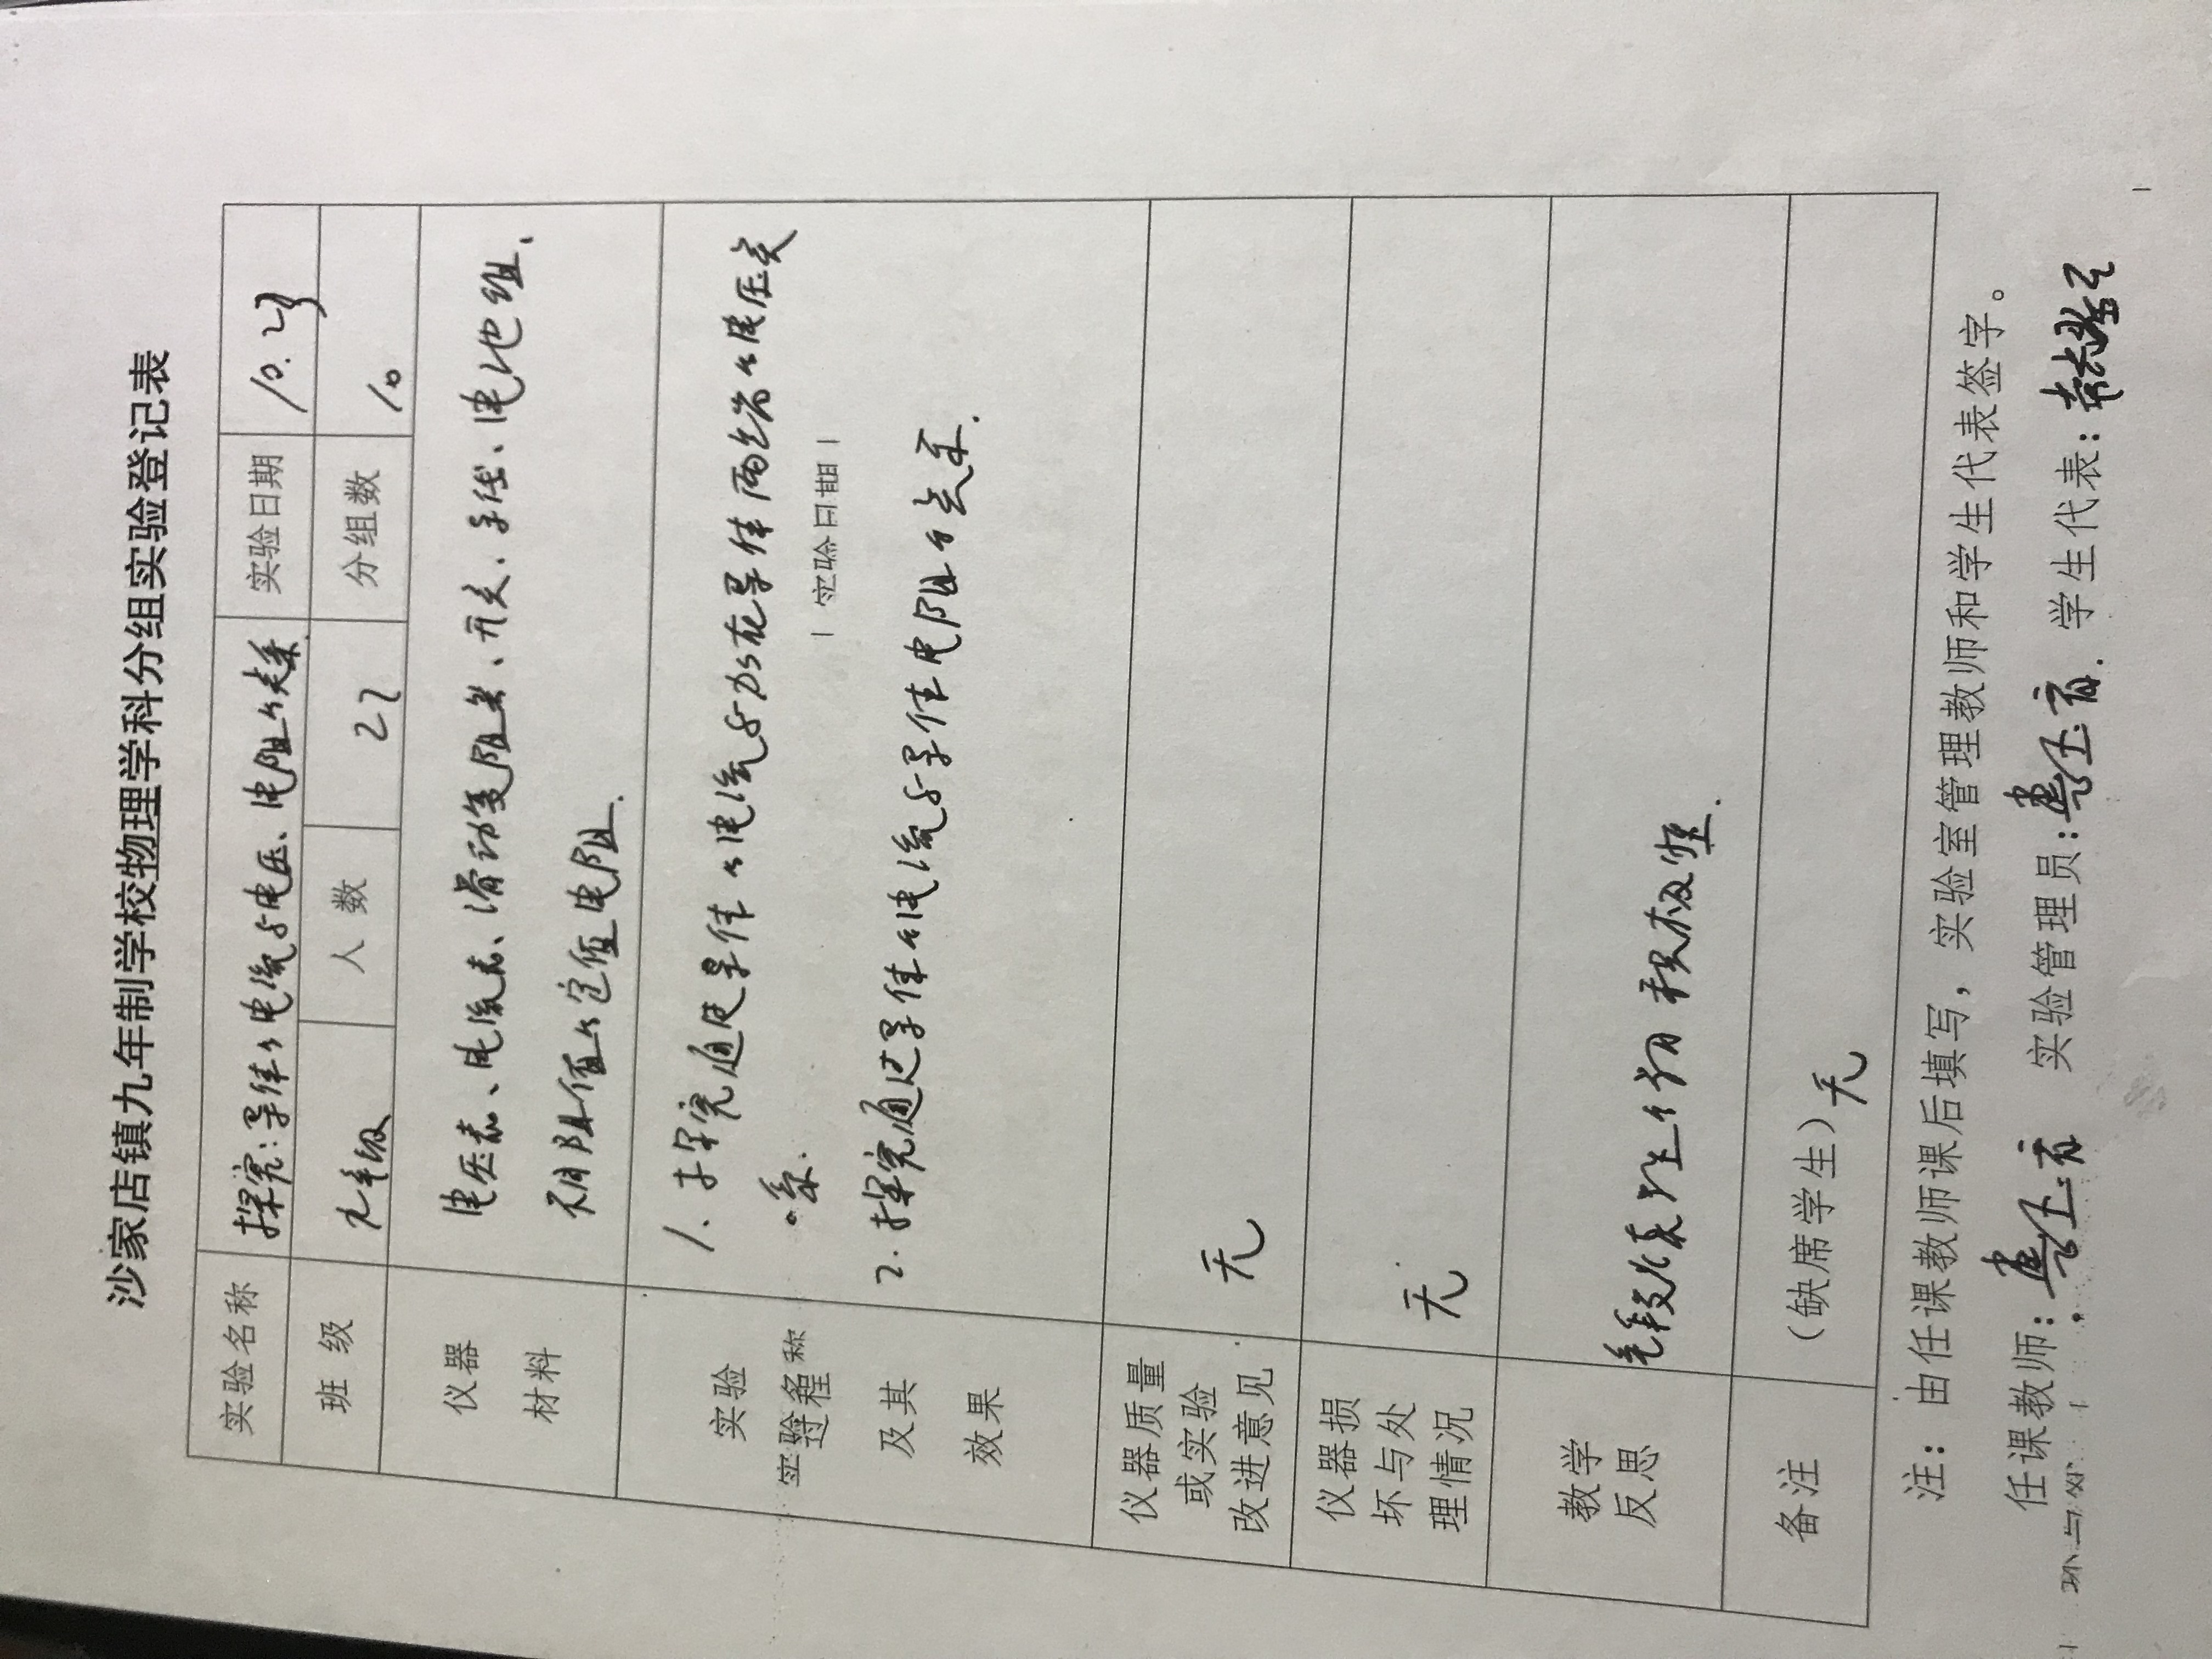 沙家店镇九年制学校物理学科分组实验登记表
实验名称 探究:导体的电流与电压、电阻的关系 实验日期 10.23
班 级 九年级 人 数 27 分组数 10
仪器 电压表、电流表、滑动变阻器、开关、导线、电池组、
材料 不同阻值的定值电阻.
实验 1.探究通过导体的电流与加在导体两端的电压关
过程 系.
及其 2.探究通过导体的电流与导体电阻的关系.
效果
实验名称
实验日期
仪器质量
或实验 无
改进意见
仪器损
坏与处 无
理情况
教学
反思 积极性.
备注 (缺席学生)无
注:由任课教师课后填写,实验室管理教师和学生代表签字。
任课教师: 实验管理员: 学生代表:
坏与处